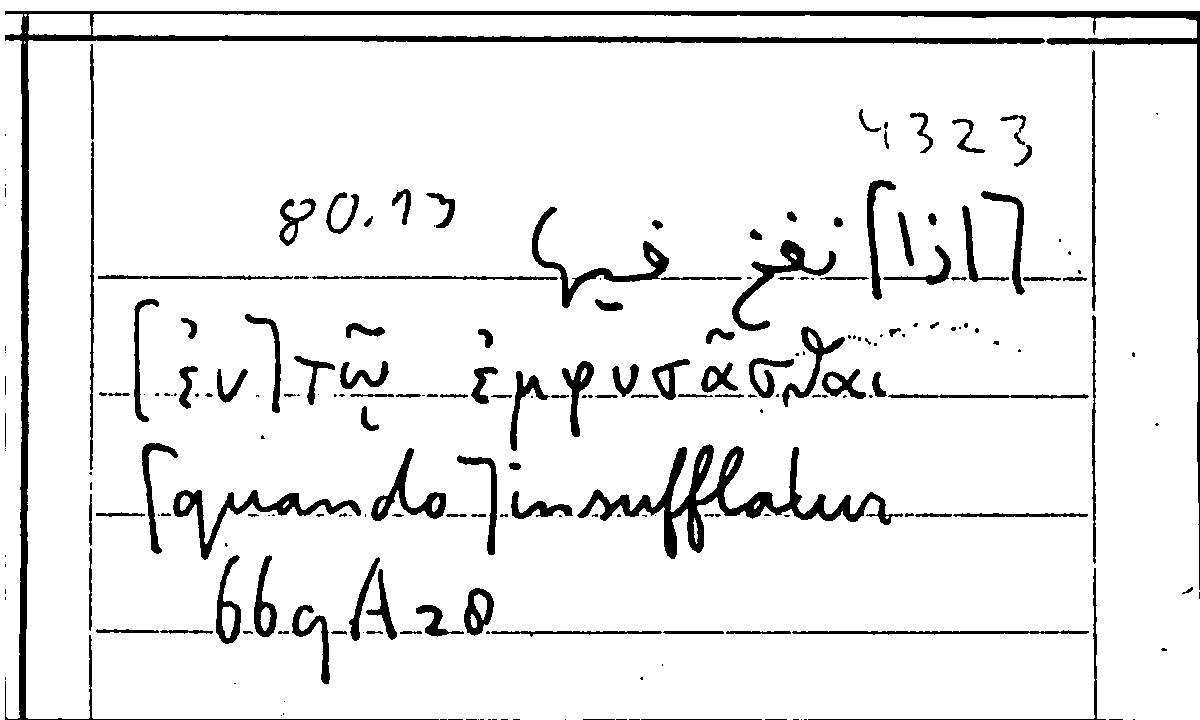 4323
[اذا] نفخ فيها 80.13
[ἐν] τῷ ἐμφυσᾶσθαι
[quando] insufflatur
669A28